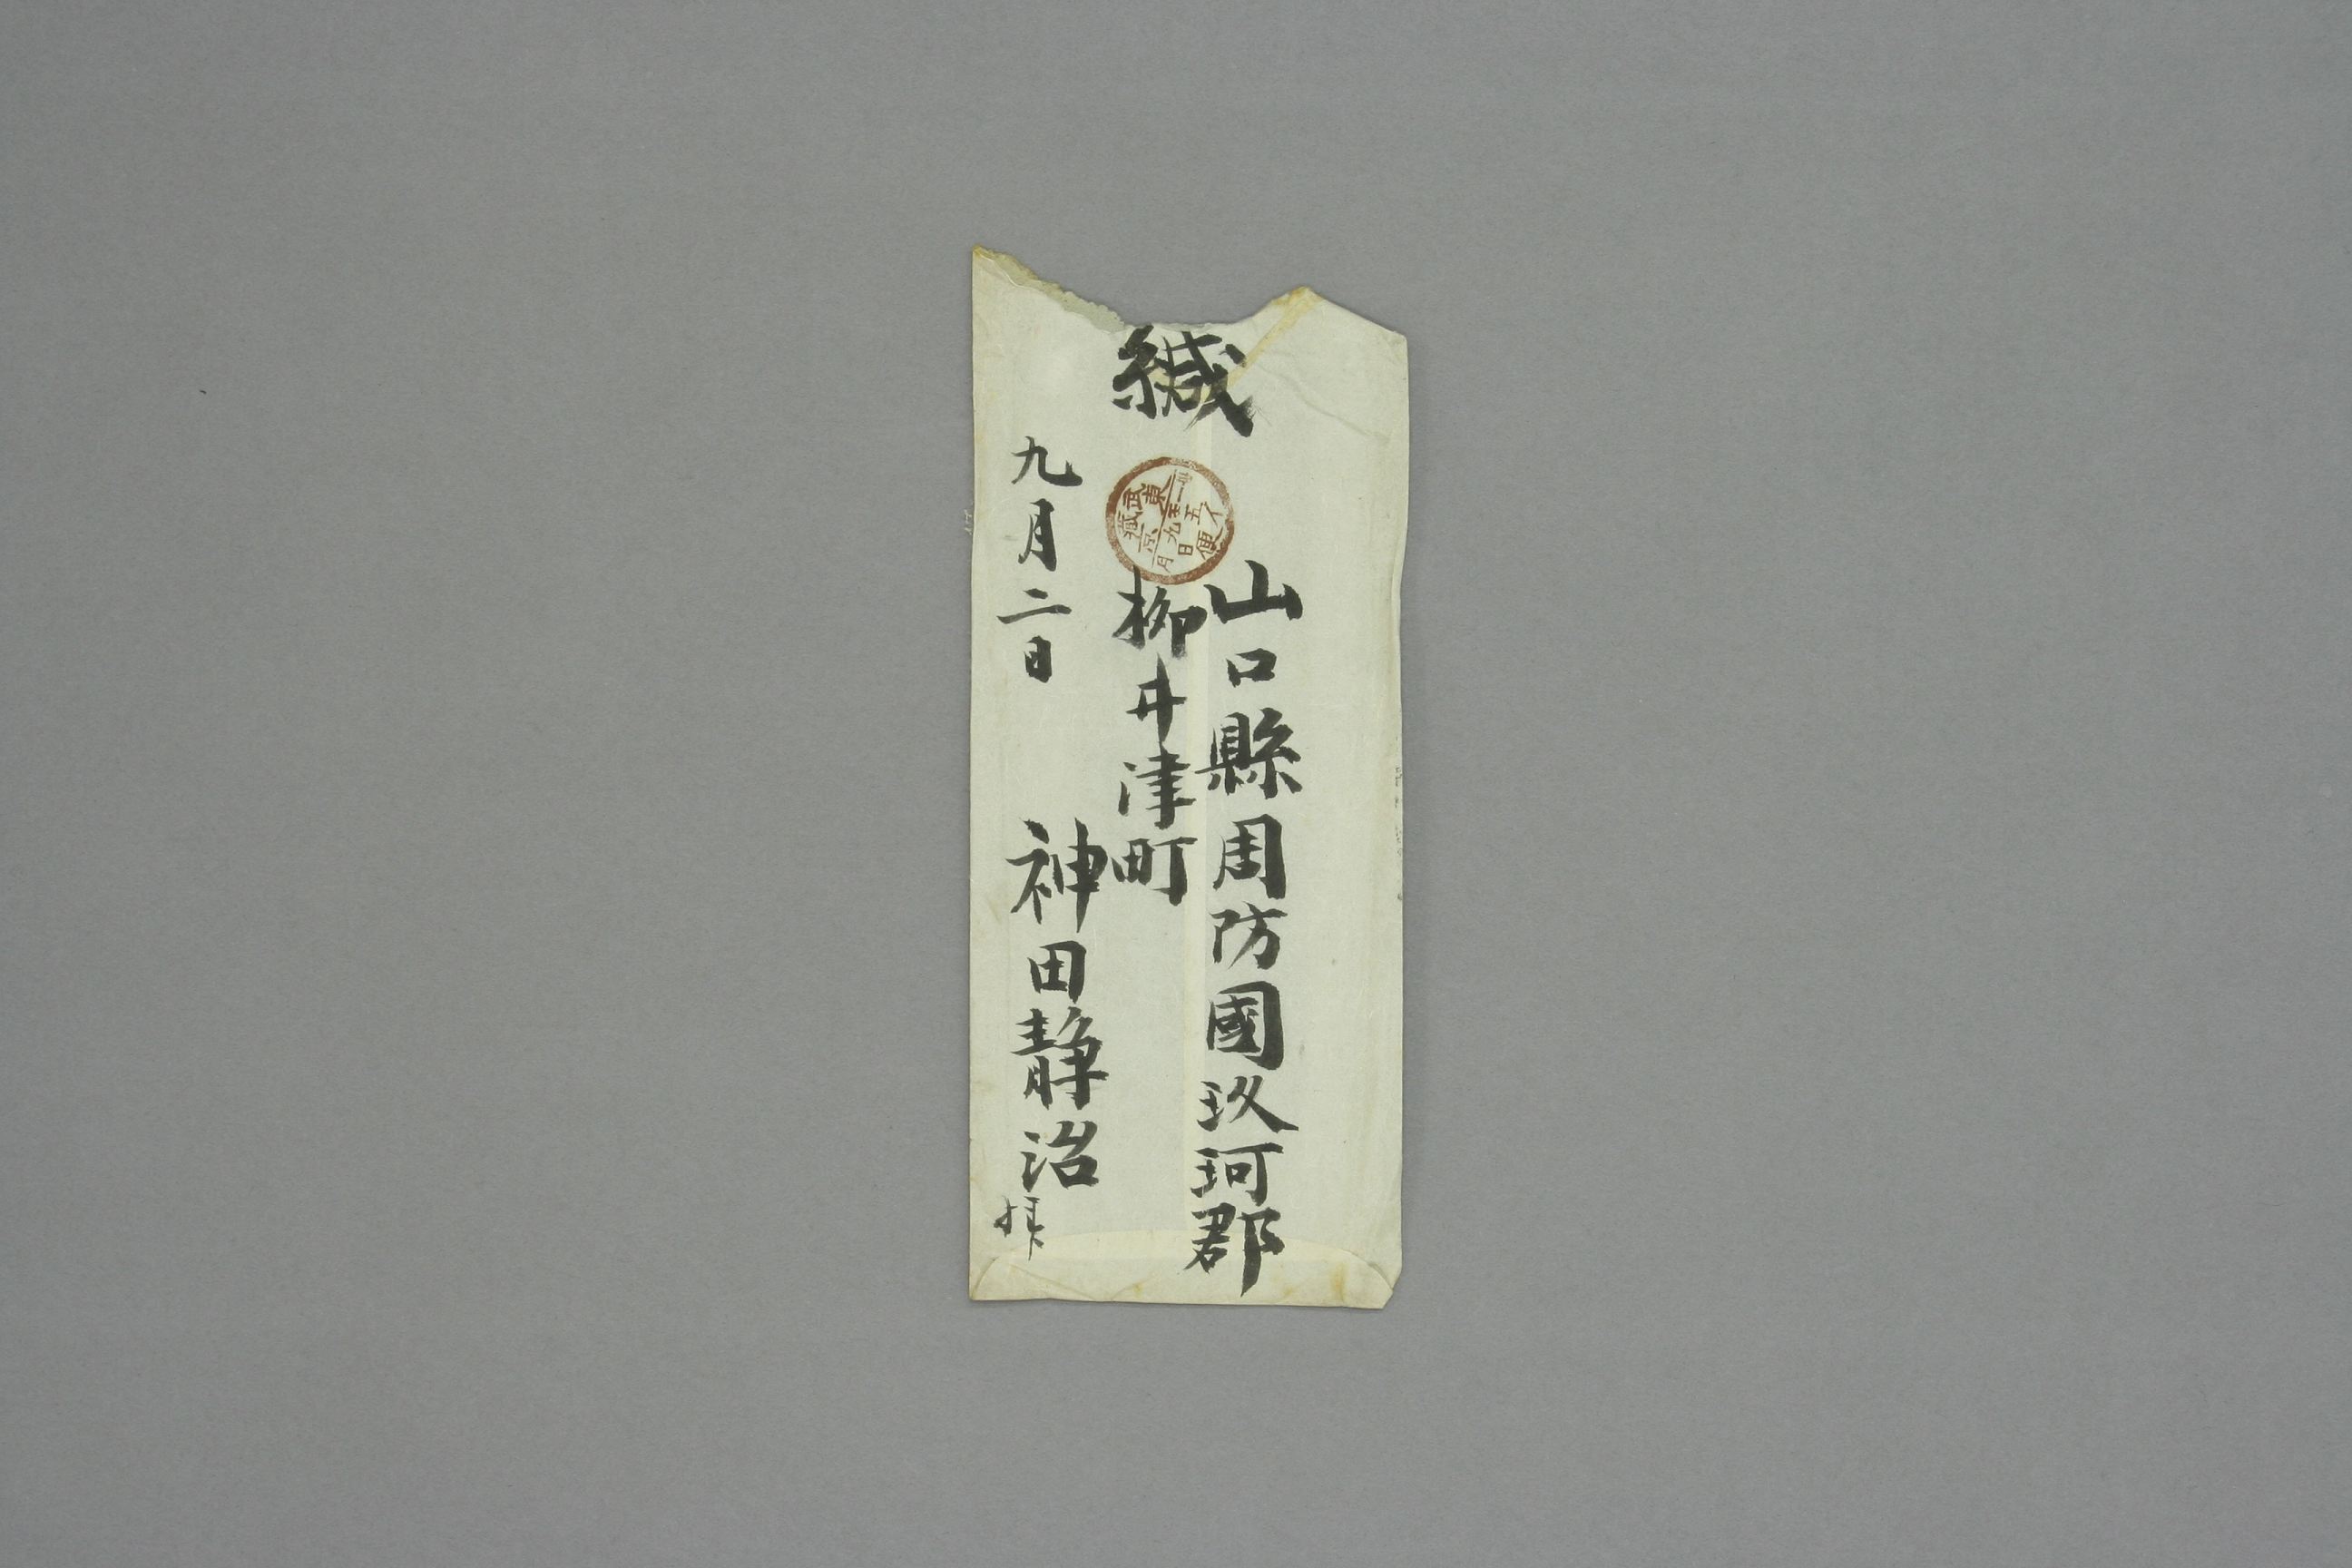 緘
山口縣周防國玖珂郡
柳井津町
九月二日
神田静治
拝
武蔵
東京